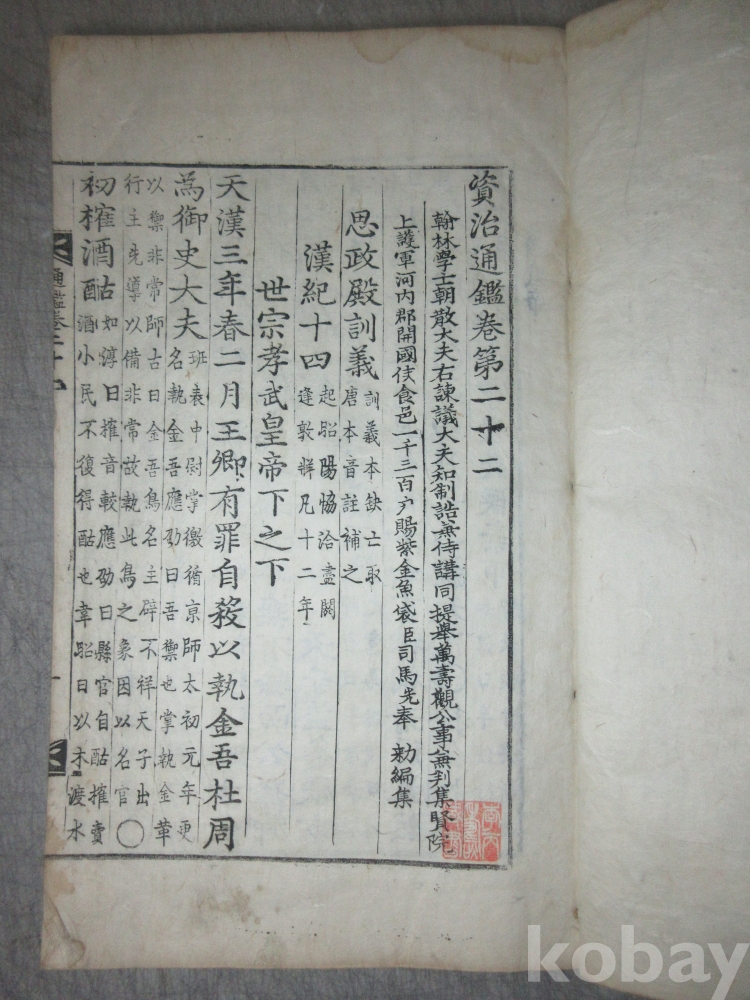 資治通鑑卷第二十二
翰林學士朝散大夫右諫議大夫知制誥兼侍講同提舉萬壽觀公事兼判集賢院
上護軍河內郡開國侯食邑一千三百户賜紫金魚袋臣司馬光奉 勑編集
思政殿訓義
訓義本缺亡取
唐本音註補之
漢紀十四
起昭陽協洽盡閼
逢敦牂凡十二年
世宗孝武皇帝下之下
天漢三年春二月王卿有罪自殺以執金吾杜周
爲御史大夫
班表中尉掌徼循京師太初元年更
名執金吾應劭曰吾禦也掌執金革
以禦非常師古曰金吾鳥名主辟不祥天子出
行主先導以備非常故執此鳥之象因以名官〇
初榷酒酤
如淳曰榷音較應劭曰縣官自酤榷賣
酒小民不復得酤也韋昭曰以木渡水
通鑑卷二十二
一
kobay